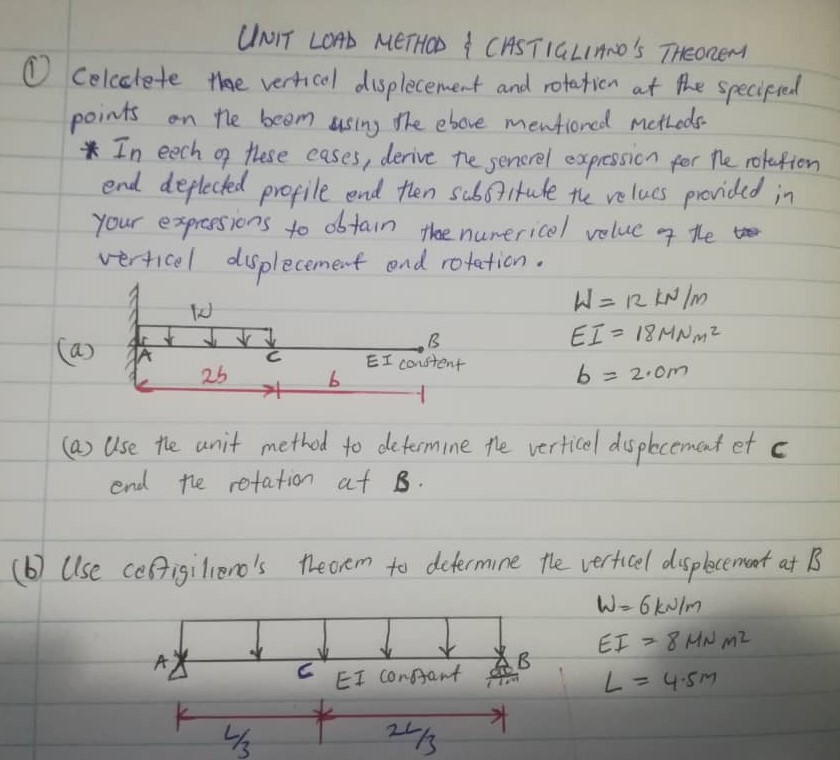 UNIT LOAD METHOD & CASTIGLIANO'S THEOREM
① Calculate the vertical displacement and rotation at the specified
points on the beam using the above mentioned methods.
* In each of these cases, derive the general expression for the rotation
and deflected profile and then substitute the values provided in
your expressions to obtain the numerical value of the
vertical displacement and rotation.
W = 12 kN/m
W
(a)
EI = 18MNm²
A
C
B
EI constant
b = 2.0m
2b
b
(a) Use the unit method to determine the vertical displacement at C
and the rotation at B.
(b) Use castigiliano's theorem to determine the vertical displacement at B
W = 6kN/m
EI = 8 MN m²
A
C
EI constant
B
L = 4.5m
L/3
2L/3